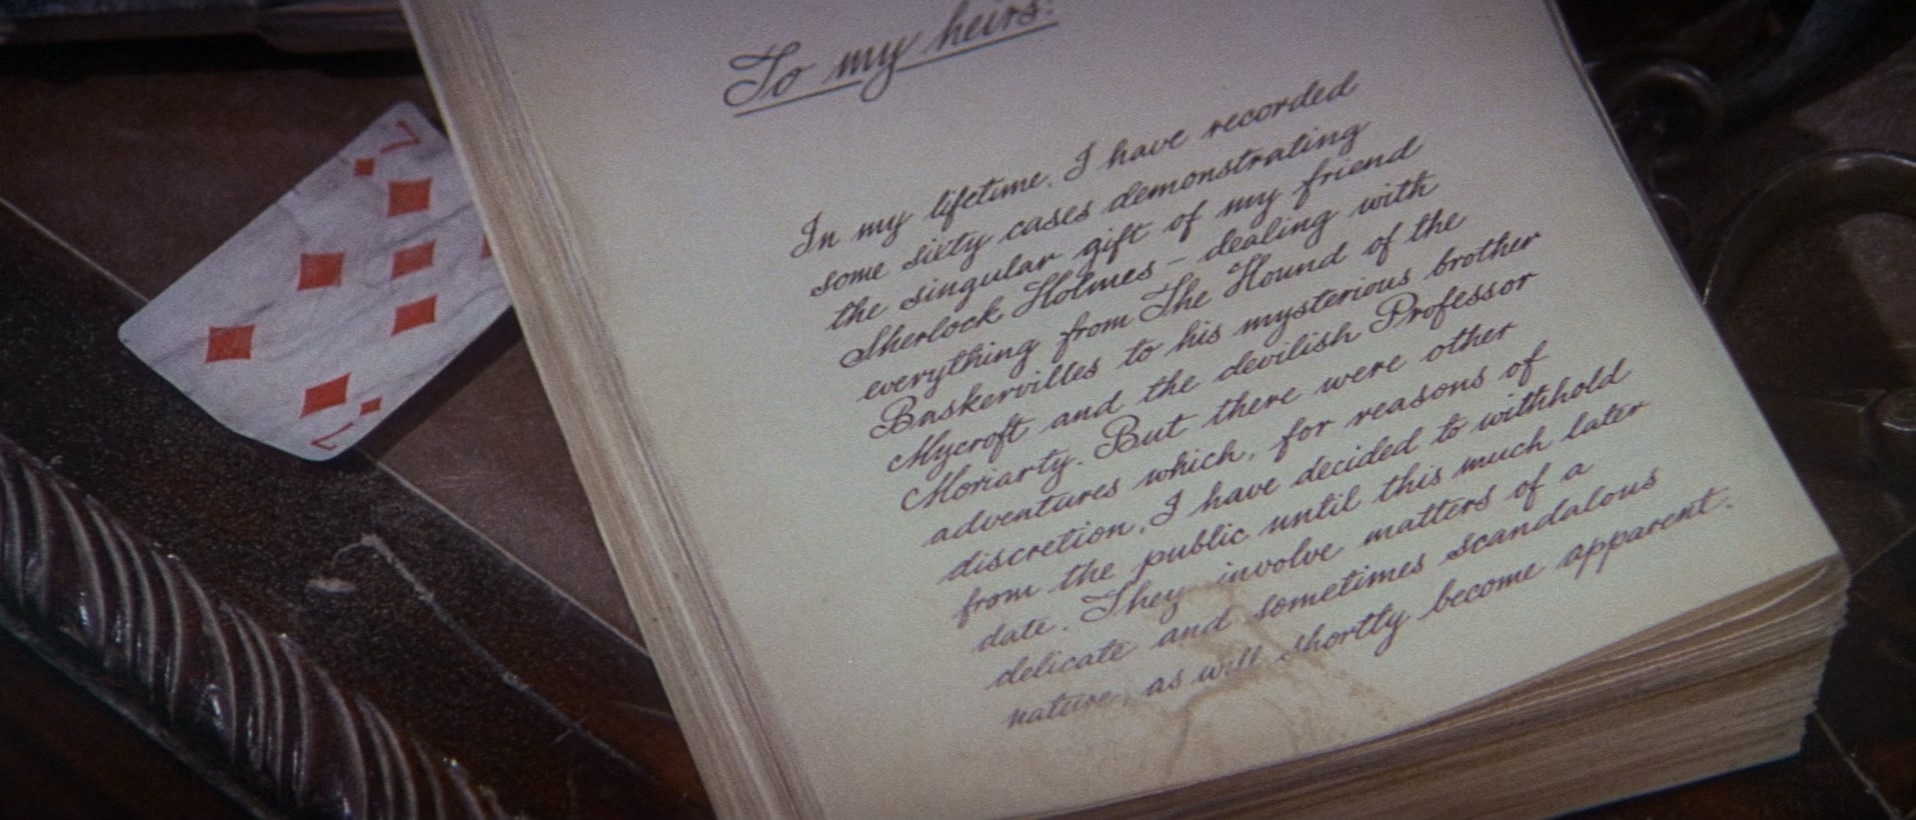 7
To my heirs:
In my lifetime, I have recorded
some sixty cases demonstrating
the singular gift of my friend
Sherlock Holmes - dealing with
everything from The Hound of the
Baskervilles to his mysterious brother
Mycroft and the devilish Professor
Moriarty. But there were other
adventures which, for reasons of
discretion, I have decided to withhold
from the public until this much later
date. They involve matters of a
delicate and sometimes scandalous
nature, as will shortly become apparent.
7